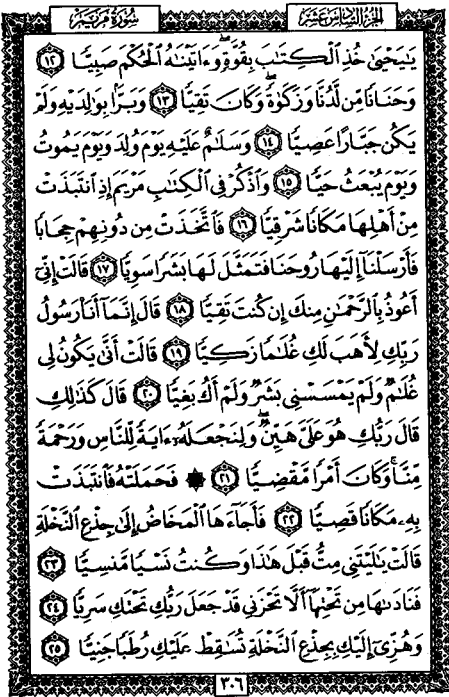 الجزء السادس عشر
سورة مريم
يَٰيَحْيَىٰ خُذِ ٱلْكِتَٰبَ بِقُوَّةٍ ۖ وَءَاتَيْنَٰهُ ٱلْحُكْمَ صَبِيًّا ١٢
وَحَنَانًا مِّن لَّدُنَّا وَزَكَوٰةً ۖ وَكَانَ تَقِيًّا ١٣ وَبَرًّۢا بِوَٰلِدَيْهِ وَلَمْ
يَكُن جَبَّارًا عَصِيًّا ١٤ وَسَلَٰمٌ عَلَيْهِ يَوْمَ وُلِدَ وَيَوْمَ يَمُوتُ
وَيَوْمَ يُبْعَثُ حَيًّا ١٥ وَٱذْكُرْ فِى ٱلْكِتَٰبِ مَرْيَمَ إِذِ ٱنتَبَذَتْ
مِنْ أَهْلِهَا مَكَانًا شَرْقِيًّا ١٦ فَٱتَّخَذَتْ مِن دُونِهِمْ حِجَابًا
فَأَرْسَلْنَآ إِلَيْهَا رُوحَنَا فَتَمَثَّلَ لَهَا بَشَرًا سَوِيًّا ١٧ قَالَتْ إِنِّىٓ
أَعُوذُ بِٱلرَّحْمَٰنِ مِنكَ إِن كُنتَ تَقِيًّا ١٨ قَالَ إِنَّمَآ أَنَا۠ رَسُولُ
رَبِّكِ لِأَهَبَ لَكِ غُلَٰمًا زَكِيًّا ١٩ قَالَتْ أَنَّىٰ يَكُونُ لِى
غُلَٰمٌ وَلَمْ يَمْسَسْنِى بَشَرٌ وَلَمْ أَكُ بَغِيًّا ٢٠ قَالَ كَذَٰلِكِ
قَالَ رَبُّكِ هُوَ عَلَىَّ هَيِّنٌ ۖ وَلِنَجْعَلَهُۥٓ ءَايَةً لِّلنَّاسِ وَرَحْمَةً
مِّنَّا ۚ وَكَانَ أَمْرًا مَّقْضِيًّا ٢١ ۞ فَحَمَلَتْهُ فَٱنتَبَذَتْ
بِهِۦ مَكَانًا قَصِيًّا ٢٢ فَأَجَآءَهَا ٱلْمَخَاضُ إِلَىٰ جِذْعِ ٱلنَّخْلَةِ
قَالَتْ يَٰلَيْتَنِى مِتُّ قَبْلَ هَٰذَا وَكُنتُ نَسْيًا مَّنسِيًّا ٢٣
فَنَادَىٰهَا مِن تَحْتِهَآ أَلَّا تَحْزَنِى قَدْ جَعَلَ رَبُّكِ تَحْتَكِ سَرِيًّا ٢٤
وَهُزِّىٓ إِلَيْكِ بِجِذْعِ ٱلنَّخْلَةِ تُسَٰقِطْ عَلَيْكِ رُطَبًا جَنِيًّا ٢٥
٣٠٦